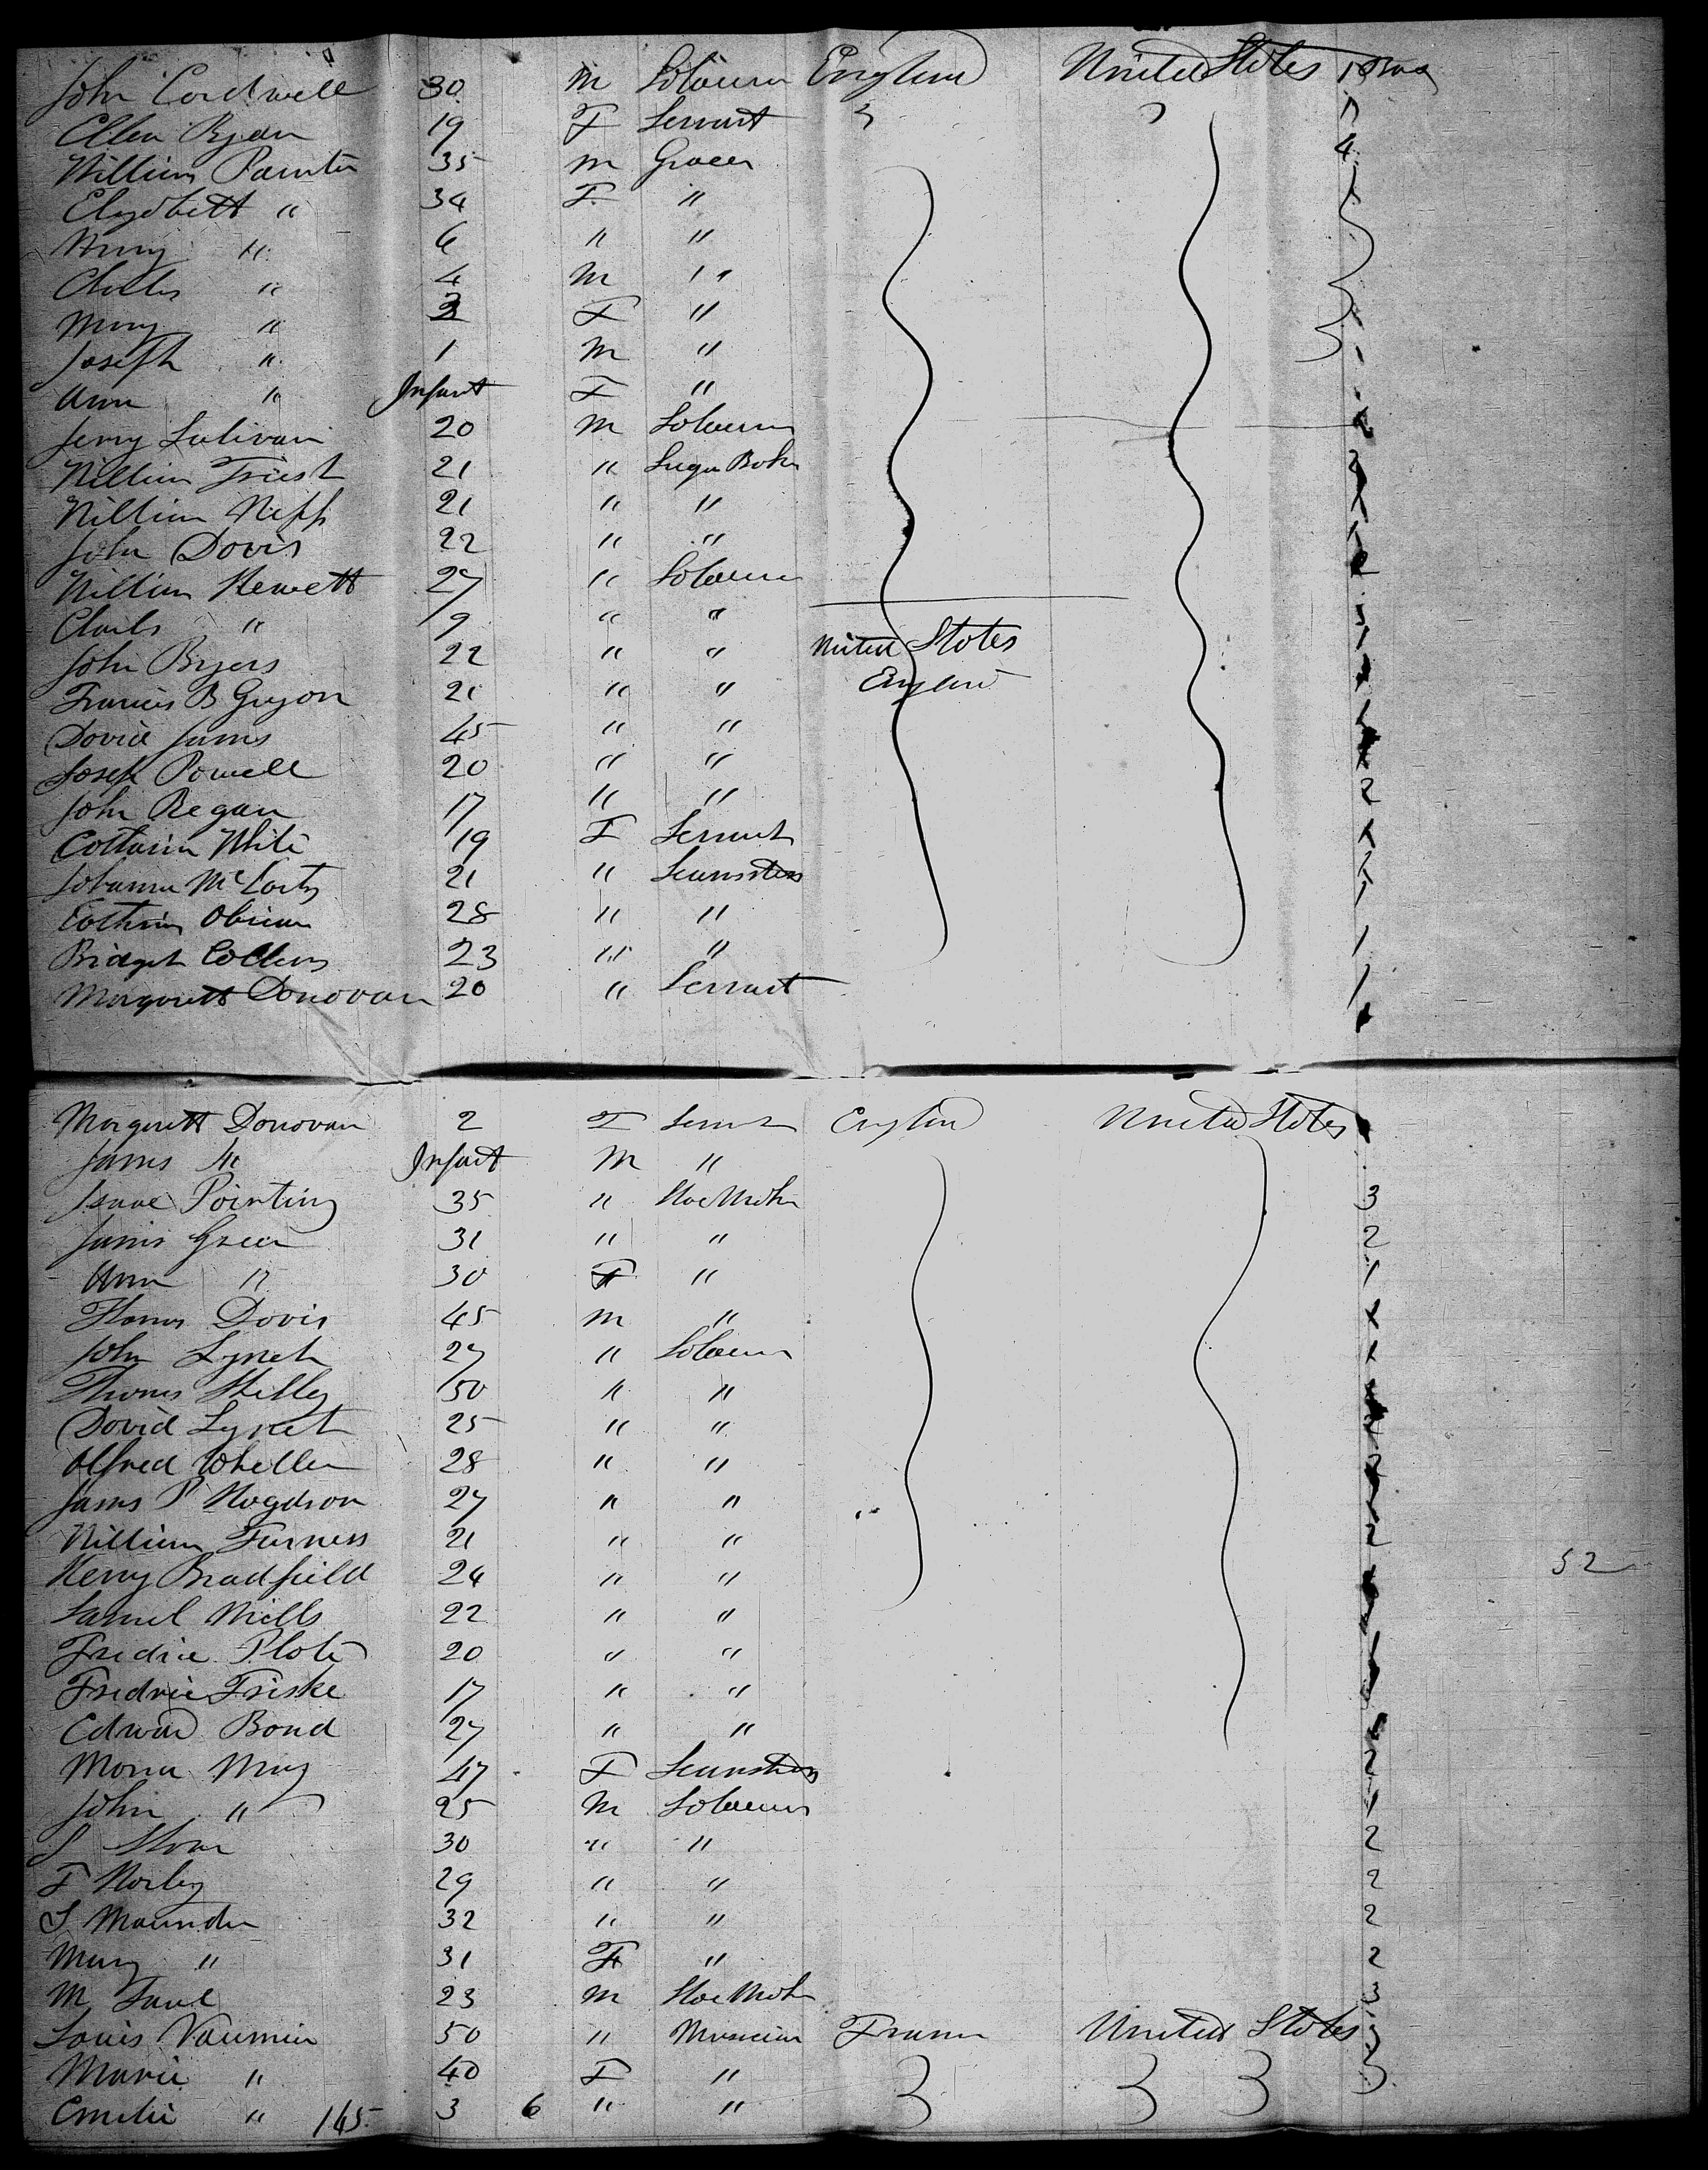 John Cordwell 30 M Labourer England United States 1 Box
Ellen Ryan 19 F Servant
William Painter 35 M Grocer 4
Elyzbett " 34 F "
" 6 " "
Charles " 4 M "
Mary " 3 F "
Joseph " 1 M "
Ann " Infant F "
Jerry Sulivan 20 M Labourer 2
William Triest 21 " Sugar Bakr 2
William Nipp 21 " "
John Davis 22 " " 1
William Hewett 27 " Labourer 2
Charls " 9 " "
John Byers 22 " " United States
Francis B Guyon 21 " " England
David Jams 45 " "
Joseph Powell 20 " "
John Regan 17 " " 2
Cattarin White 19 F Servant
Johanna McCarty 21 " Seamstress 1
Cathrin Obrien 28 " " 1
Bridget Collens 23 " " 1
Margarett Donovan 20 " Servant 1
Margarett Donovan 2 F Servant England United States
Jams " Infant M "
Isaac Pointing 35 " Shoe Makr 3
Jams Green 31 " " 2
Ann " 30 F " 1
Thomas Davis 45 M "
John Lynch 27 " Labourer
Thomas 50 " "
David Lynch 25 " "
Alfred Wheller 28 " "
Jams P Hogdson 27 " "
William Furness 21 " " 2
Henry Bradfield 24 " " 52
Samuel Mills 22 " "
Fredric Plate 20 " "
Fredric Friske 17 " "
Edward Bond 27 " "
Maria May 47 F Seamstress 2
John " 25 M Labourer 1
30 " " 2
F Norley 29 " " 2
S Maunder 32 " " 2
Mary " 31 F " 2
M Saul 23 M Shoe Makr 3
Louis Vaumier 50 " Musician France United States 3
Marie " 40 F "
Emelie " 165 3 6 " "